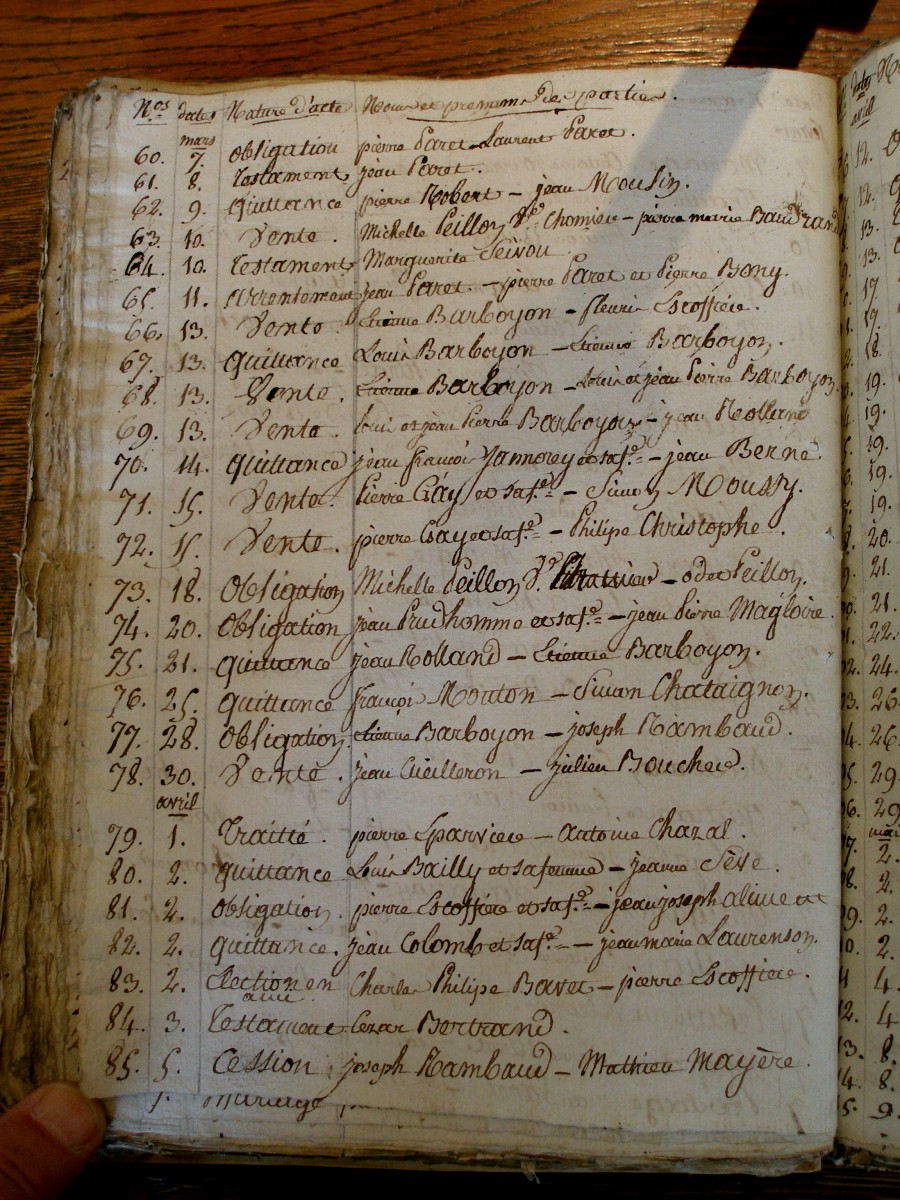 N.os dates Nature d'acte Noms et prenoms des parties.
mars
60. 7. Obligation pierre Paret - Laurent Paret.
61. 8. Testament jean Paret.
62. 9. Quittance pierre Robert - jean Moulin.
63. 10. Vente. Michelle Peillon Ve. Chomieu - pierre marie Baudrand
64. 10. Testament Marguerite Seivou
65. 11. arrentement jean Paret. - pierre Paret et Pierre Bony.
66. 13. Vente Etienne Barboyon - fleurie Escoffière.
67. 13. quittance Louis Barboyon - Etienne Barboyon.
68. 13. Vente. Etienne Barboyon - Louis et jean Pierre Barboyon.
69. 13. Vente. Louis et jean Pierre Barboyon - jean Rolland
70. 14. quittance jean françois Jamorey et sa fe. - jean Berne.
71. 15. Vente. Pierre Gay et sa fe. - Simon Moussy.
72. 15. Vente. pierre Gay et sa fe. - Philipe Christophe.
73. 18. Obligation Michelle Peillon Ve. - odet Peillon.
74. 20. Obligation jean Prudhomme et sa fe. - jean Pierre Magloire.
75. 21. quittance jean Rolland - Etienne Barboyon.
76. 25. quittance françois Mouton - Simon Chataignon.
77. 28. Obligation. etienne Barboyon - joseph Rambaud.
78. 30. Vente. jean Cueilleron - julien Bouched.
avril
79. 1. Traitté. pierre Eparviere - antoine Chazal.
80. 2. quittance Louis Bailly et sa femme - jeanne Sève.
81. 2. Obligation. pierre Escoffière et sa fe. - jean joseph
82. 2. quittance. jean Colomb et sa fe. - jeanmarie Laurenson.
83. 2. Election en Charles Philipe Bavet - pierre Escoffiere.
amie
84. 3. Testament Cezar Bertrand.
85. 5. Cession joseph Rambaud - Mathieu Mayère.
mariage